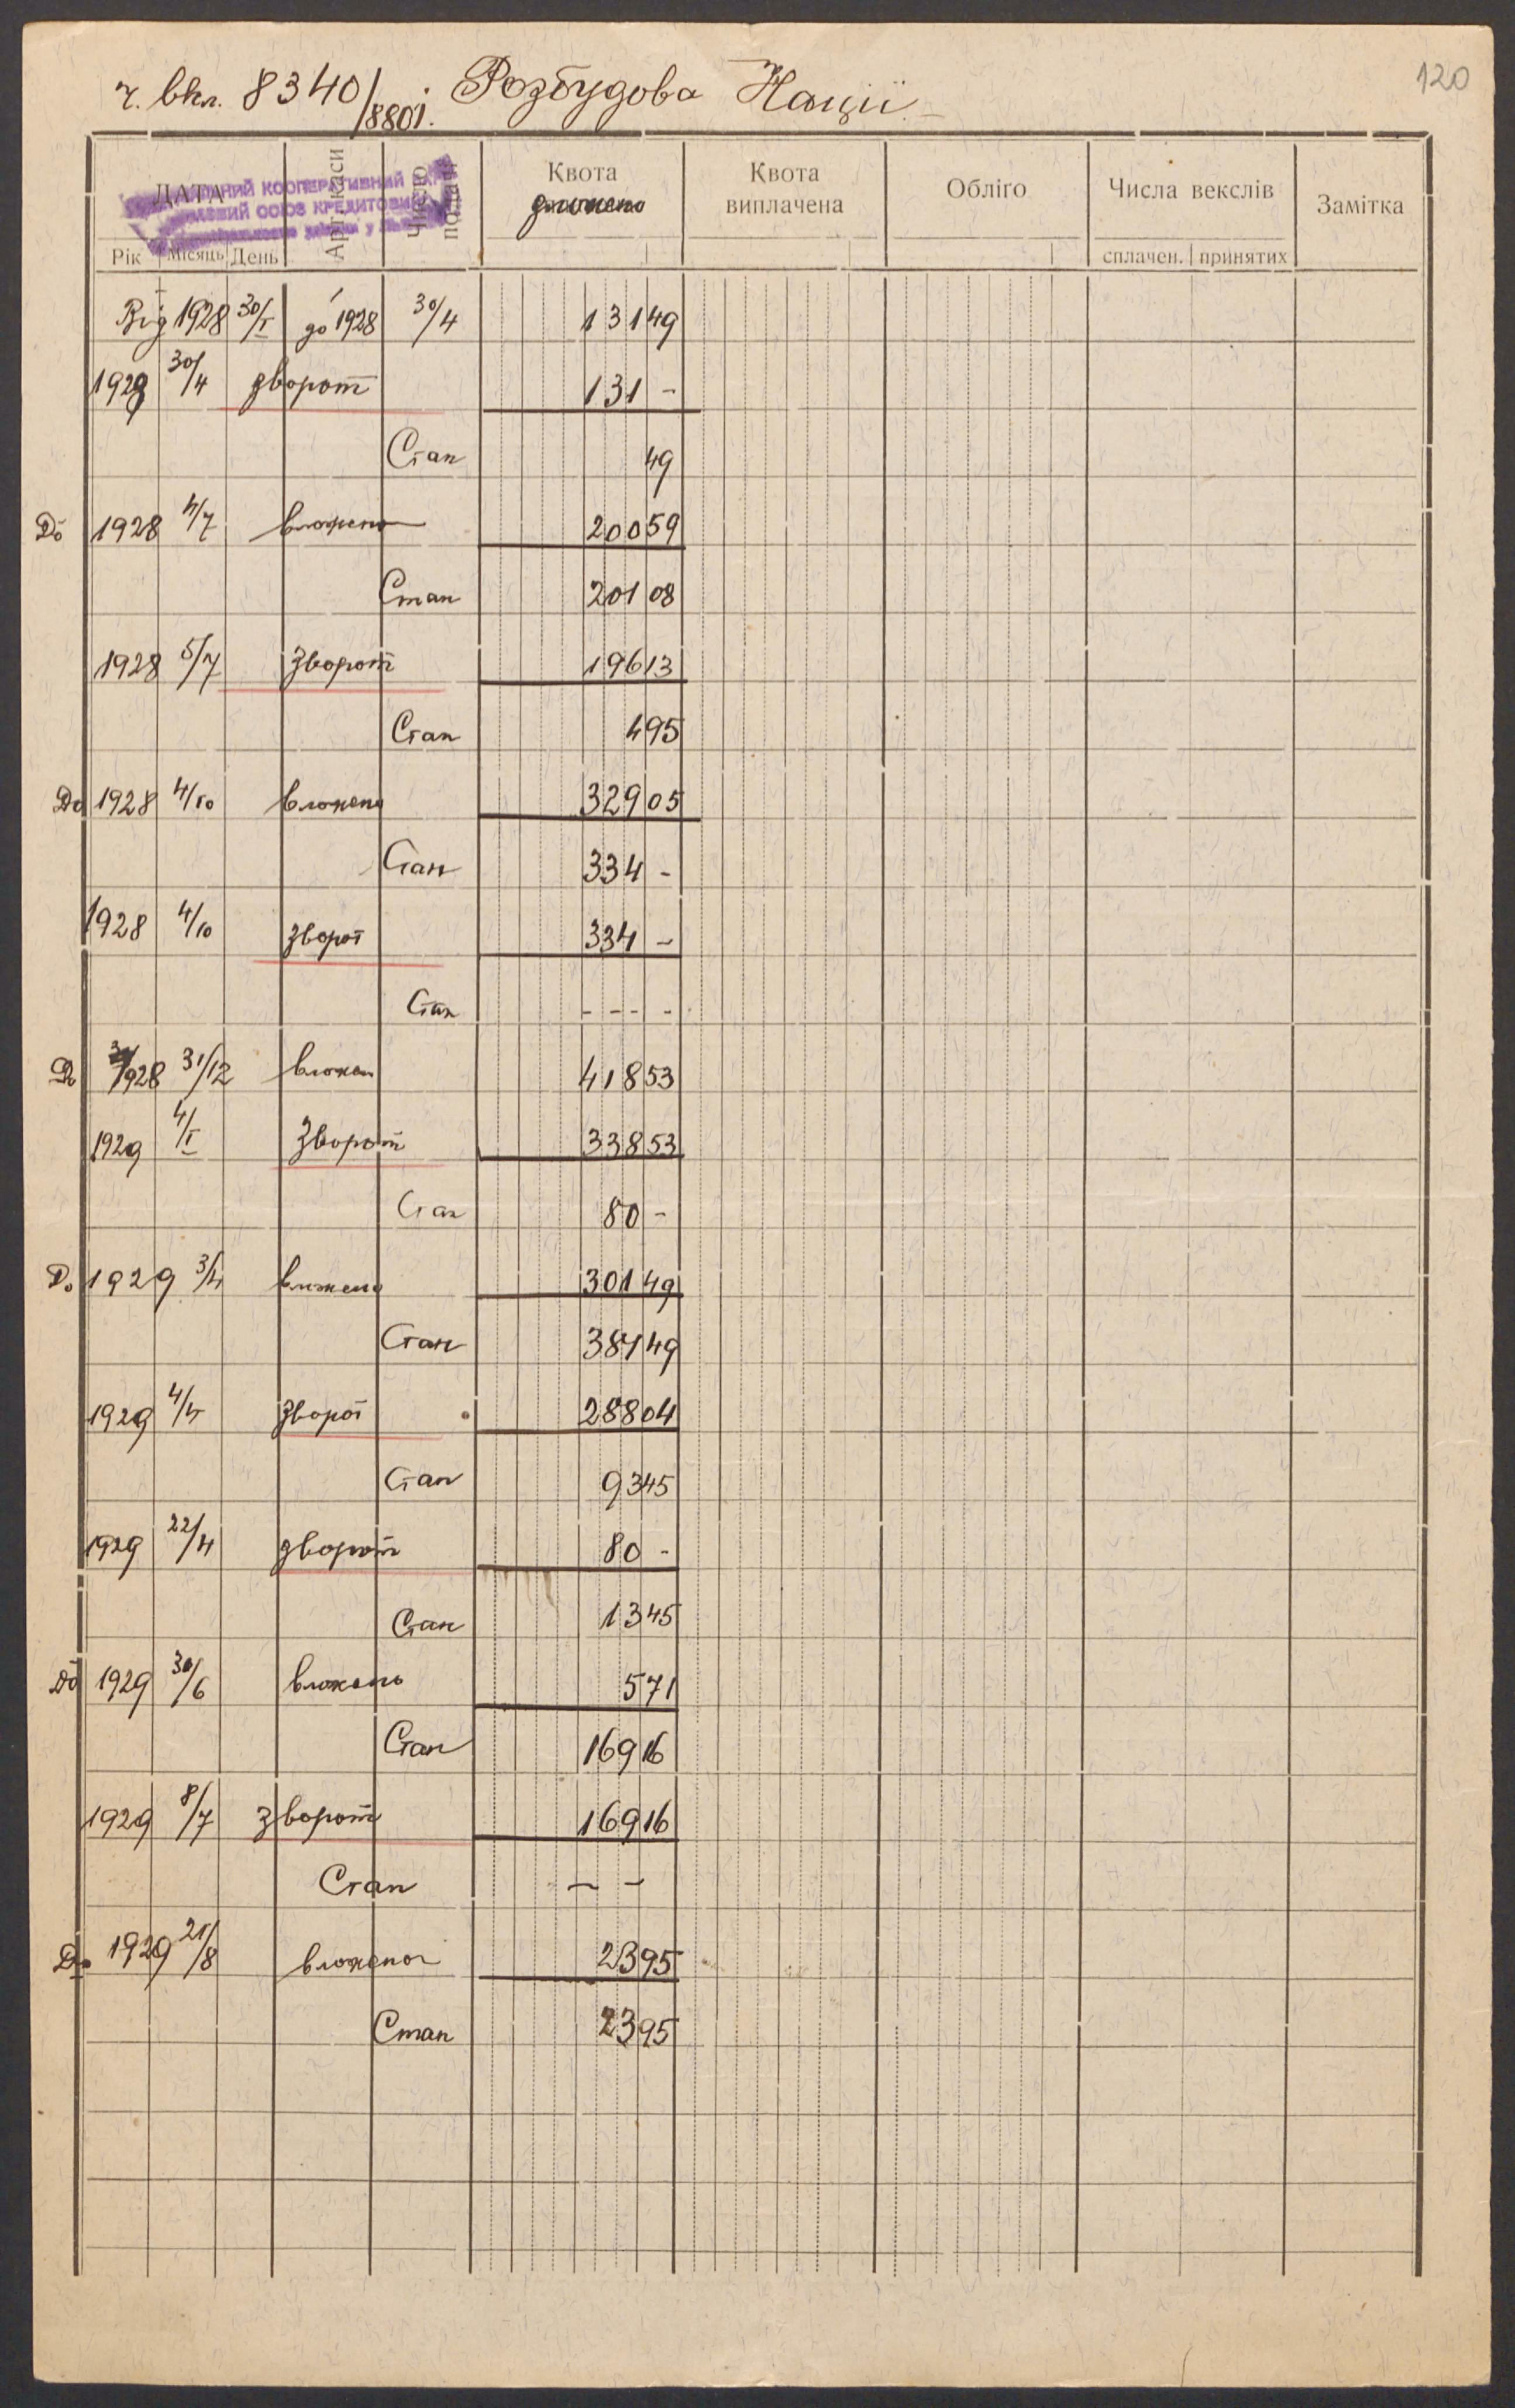 120
ч. вкл. 8340/8801. Розбудова Нації
ДАТА
Арт. каси
Число
Квота
вложено
Квота
виплачена
Обліґо
Числа векслів
Замітка
Рік Місяць День
сплачен. принятих
КООПЕРАТИВНИЙ
СОЮЗ
Від 1928 30/I до 1928 30/4 131 49
1928 30/4 зворот 131 -
Стан 49
До 1928 4/7 вложено 200 59
Стан 201 08
1928 5/7 зворот 196 13
Стан 4 95
До 1928 4/10 вложено 329 05
Стан 334 -
1928 4/10 зворот 334 -
Стан - - - -
До 1928 31/12 вложен 418 53
1929 4/I зворот 338 53
Стан 80 -
До 1929 3/4 вложено 301 49
Стан 381 49
1929 4/4 зворот 288 04
Стан 93 45
1929 22/4 зворот 80 -
Стан 13 45
До 1929 30/6 вложено 5 71
Стан 169 16
1929 8/7 зворот 169 16
Стан - -
До 1929 21/8 вложено 23 95
Стан 23 95